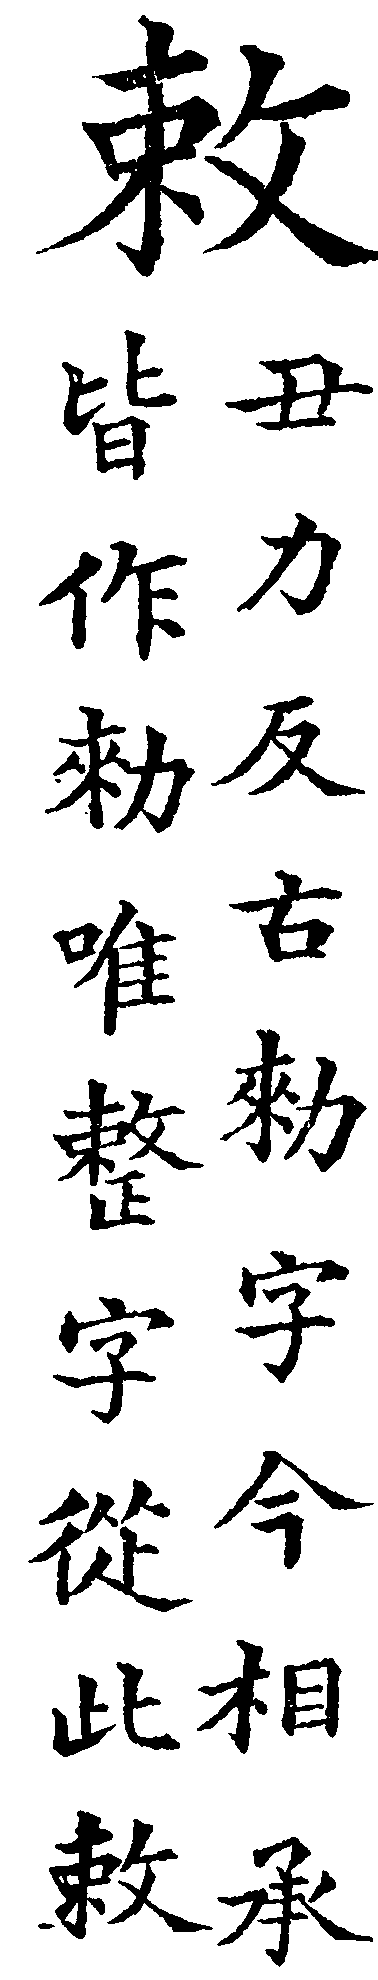 敕
丑力反古勑字今相承
皆作勑唯整字從此敕